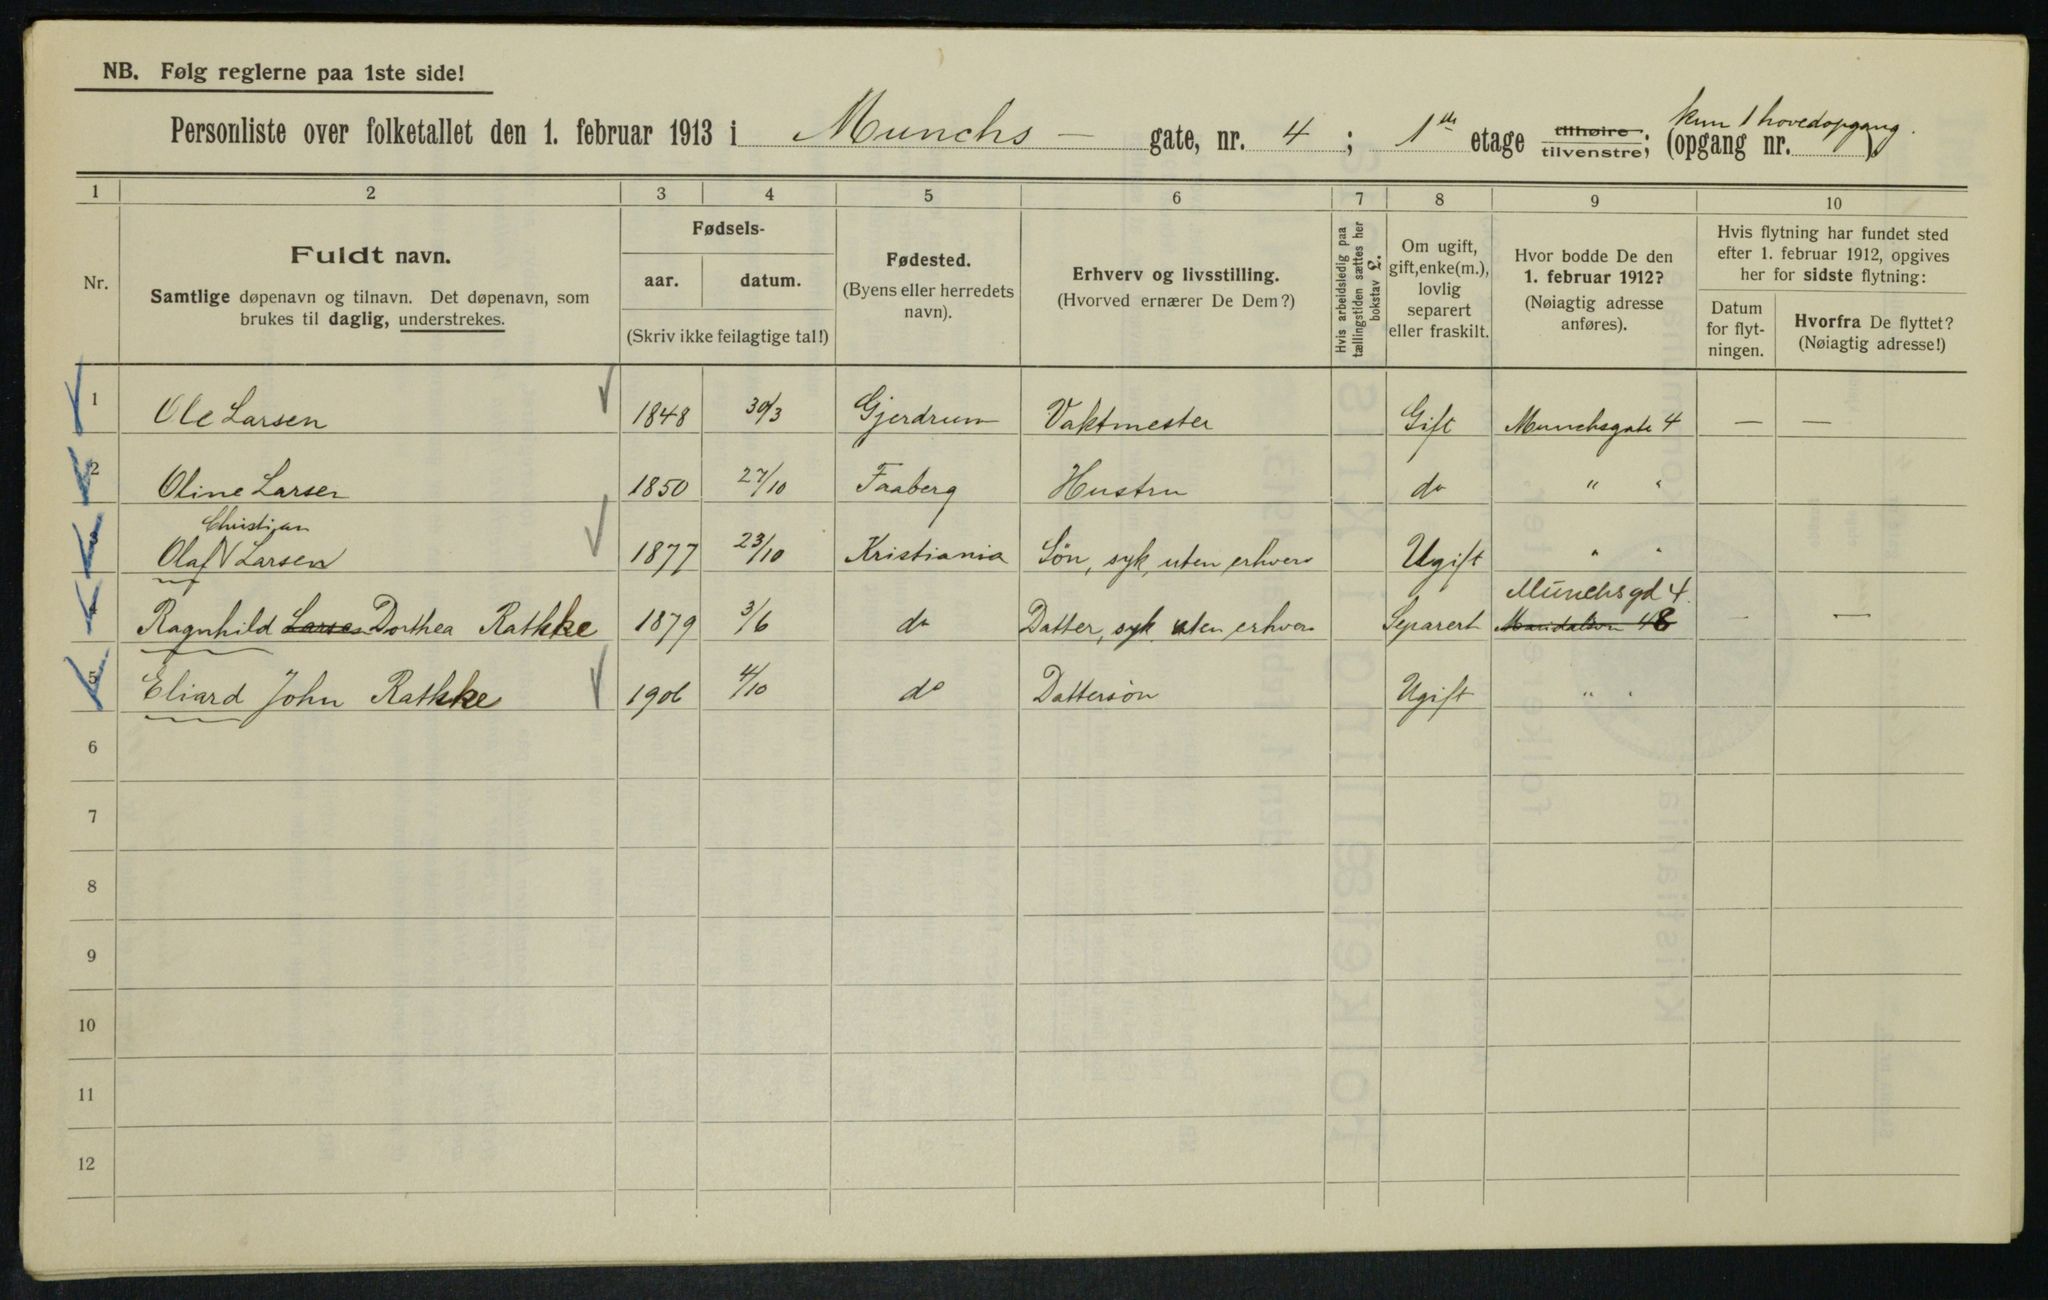 NB. Følg reglerne paa 1ste side!
kun 1 hovedopgang.
Personliste over folketallet den 1. februar 1913 i Munchs — gate, nr. 4 ; 1ste etage tilhøire tilvenstre; (opgang nr. ).
1 2 3 4 5 6 7 8 9 10
Nr.
Fuldt navn.
Samtlige døpenavn og tilnavn. Det døpenavn, som
brukes til daglig, understrekes.
Fødsels-
aar. datum.
(Skriv ikke feilagtige tal!)
Fødested.
(Byens eller herredets
navn).
Erhverv og livsstilling.
(Hvorved ernærer De Dem?)
Hvis arbeidsledig paa
tællingstiden sættes her
bokstav L.
Om ugift,
gift, enke(m.),
lovlig
separert
eller fraskilt.
Hvor bodde De den
1. februar 1912?
(Nøiagtig adresse
anføres).
Hvis flytning har fundet sted
efter 1. februar 1912, opgives
her for sidste flytning:
Datum
for flyt-
ningen.
Hvorfra De flyttet?
(Nøiagtig adresse!)
1 Ole Larsen 1848 30/3 Gjerdrum Vaktmester Gift Munchsgate 4 — —
2 Oline Larsen 1850 27/10 Faaberg Hustru do " "
Christian
3 Olaf V Larsen 1877 23/10 Kristiania Sön, syk, uten erhverv Ugift " "
Munchsgd 4.
4 Ragnhild Larsen Dorthea Rathke 1879 3/6 do Datter, syk uten erhverv Separert Maridalsvn 48 — —
5 Eliard John Rathke 1906 4/10 do Dattersøn Ugift " "
6
7
8
9
10
11
12